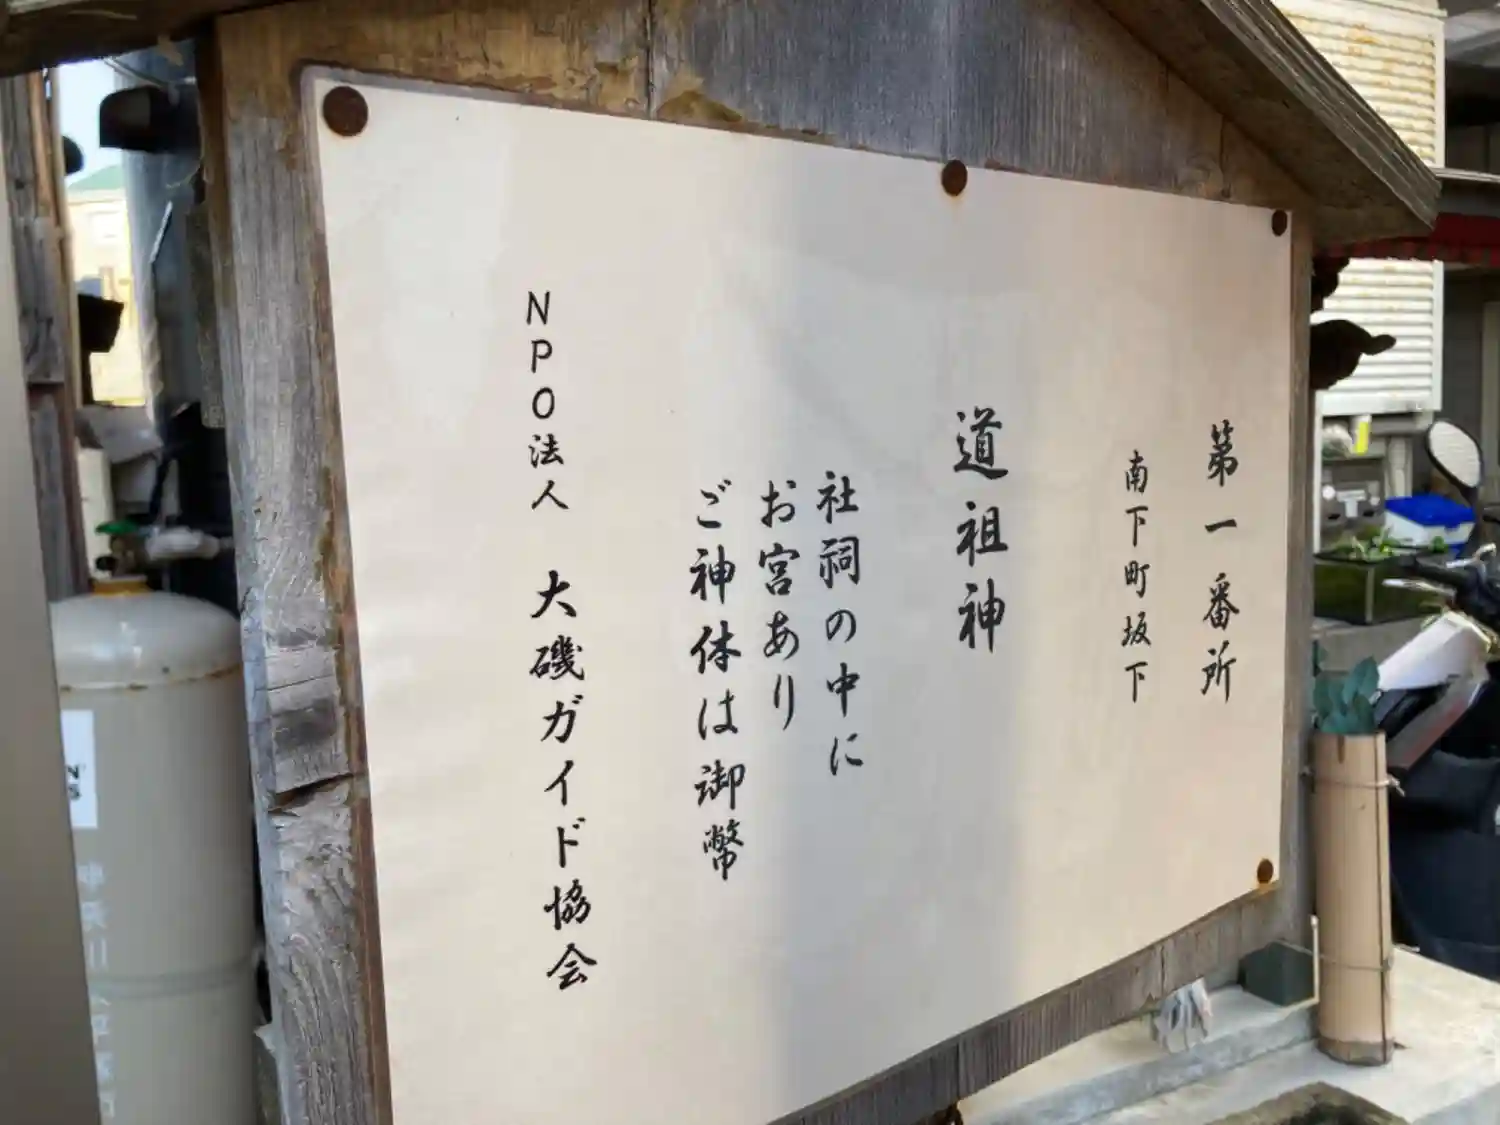 第一番所
南下町坂下
道祖神
社祠の中に
お宮あり
ご神体は御幣
NPO法人 大磯ガイド協会